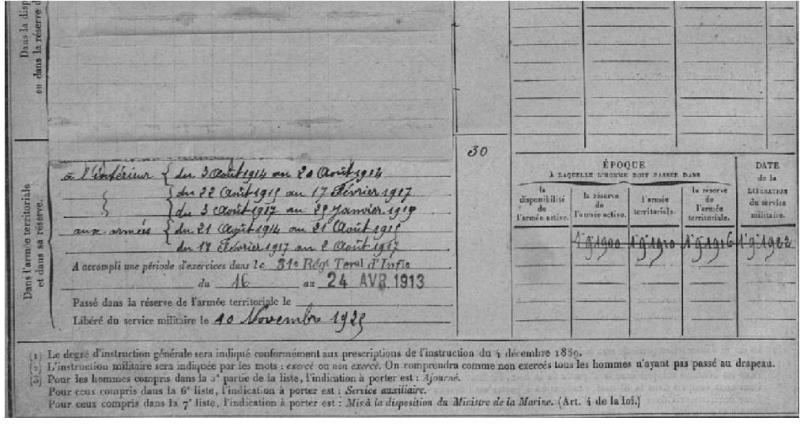 Dans la disp
ou dans la réserve
Dans l'armée territoriale
et dans sa réserve.
à l'intérieur { du 3 Août 1914 au 20 Août 1914
du 22 Août 1915 au 17 Février 1917
du 3 Août 1917 au 29 Janvier 1919
aux armées { du 21 Août 1914 au 21 Août 1915
du 18 Février 1917 au 2 Août 1917
A accompli une période d'exercices dans le 31e Régt Teral d'Infie
du 16 au 24 AVR 1913
Passé dans la réserve de l'armée territoriale le
Libéré du service militaire le 10 Novembre 1925
30
ÉPOQUE
À LAQUELLE L'HOMME DOIT PASSER DANS
la
disponibilité
de
l'armée active.
la réserve
de
l'armée active.
l'armée
territoriale.
la réserve
de
l'armée
territoriale.
DATE
de la
LIBÉRATION
du service
militaire.
1 9 1900 1 9 1910 1 9 1916 1 9 1922
(1) Le degré d'instruction générale sera indiqué conformément aux prescriptions de l'instruction du 4 décembre 1889.
(2) L'instruction militaire sera indiquée par les mots : exercé ou non exercé. On comprendra comme non exercés tous les hommes n'ayant pas passé au drapeau.
(3) Pour les hommes compris dans la 5e partie de la liste, l'indication à porter est : Ajourné.
Pour ceux compris dans la 6e liste, l'indication à porter est : Service auxiliaire.
Pour ceux compris dans la 7e liste, l'indication à porter est : Mis à la disposition du Ministre de la Marine. (Art. 4 de la loi.)